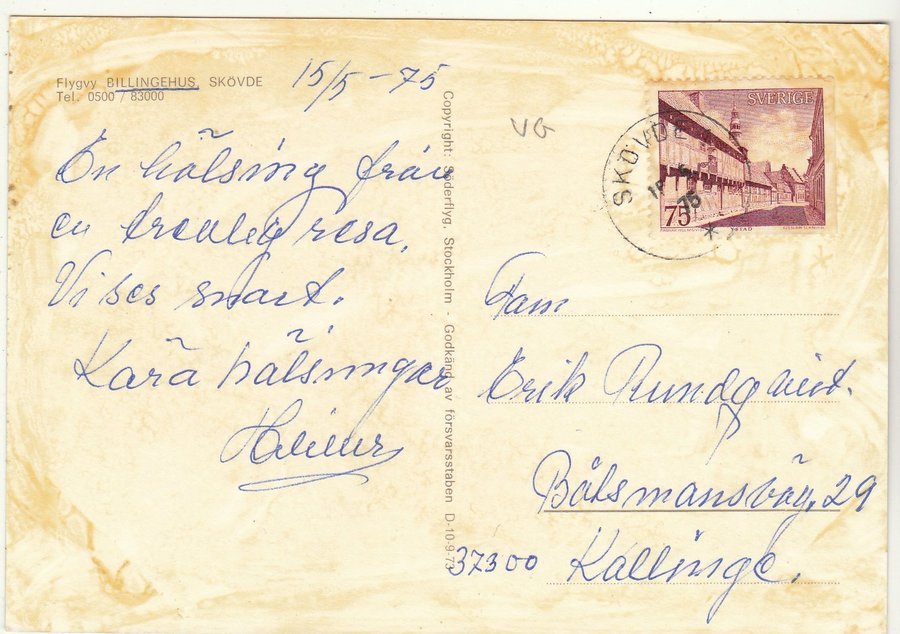 Flygvy BILLINGEHUS, SKÖVDE
Tel. 0500 / 83000
15/5 - 75
En hälsning från
en trevlig resa.
Vi ses snart.
Kära hälsningar
Copyright: Söderflyg, Stockholm - Godkänd av försvarsstaben D-10-9-73
VG
SVERIGE
75
YSTAD
SKÖVDE
75
Fam
Erik Rundqvist.
Båtsmansväg. 29
37300 Kallinge.